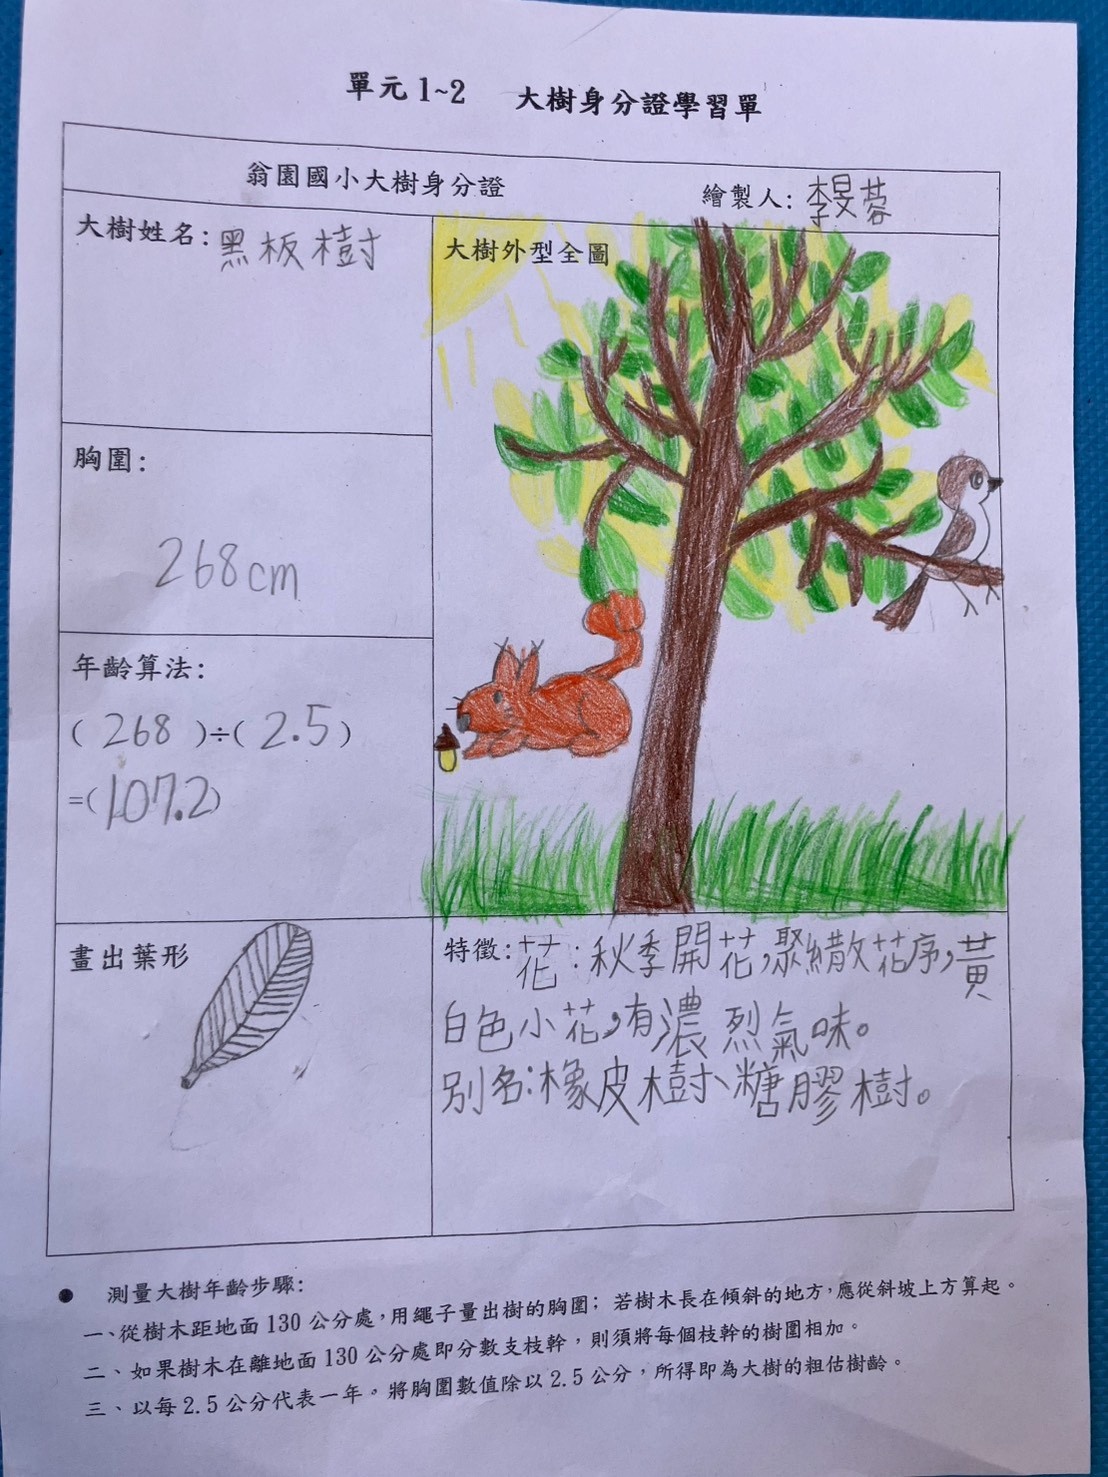 單元1~2 大樹身分證學習單
翁園國小大樹身分證 繪製人:李旻蓉
大樹姓名:黑板樹
大樹外型全圖
胸圍:
268cm
年齡算法:
(268)÷(2.5)
=(107.2)
畫出葉形
特徵:花:秋季開花,聚繖花序,黃
白色小花,有濃烈氣味。
別名:橡皮樹、糖膠樹。
● 測量大樹年齡步驟:
一、從樹木距地面130公分處,用繩子量出樹的胸圍;若樹木長在傾斜的地方,應從斜坡上方算起。
二、如果樹木在離地面130公分處即分數支枝幹,則須將每個枝幹的樹圍相加。
三、以每2.5公分代表一年。將胸圍數值除以2.5公分,所得即為大樹的粗估樹齡。